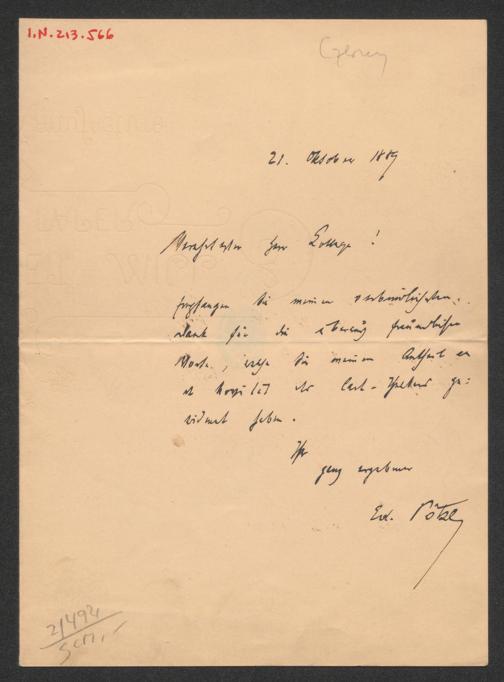 I.N. 213.566
21. Oktober 1889
Verehrtester Herr College!
Empfangen Sie meinen verbindlichsten
Dank für die überaus freundlichen
Worte, welche Sie meinem Antheil an
der
widmet haben.
Ihr
ganz ergebener
Ed. Pötzl
2/494